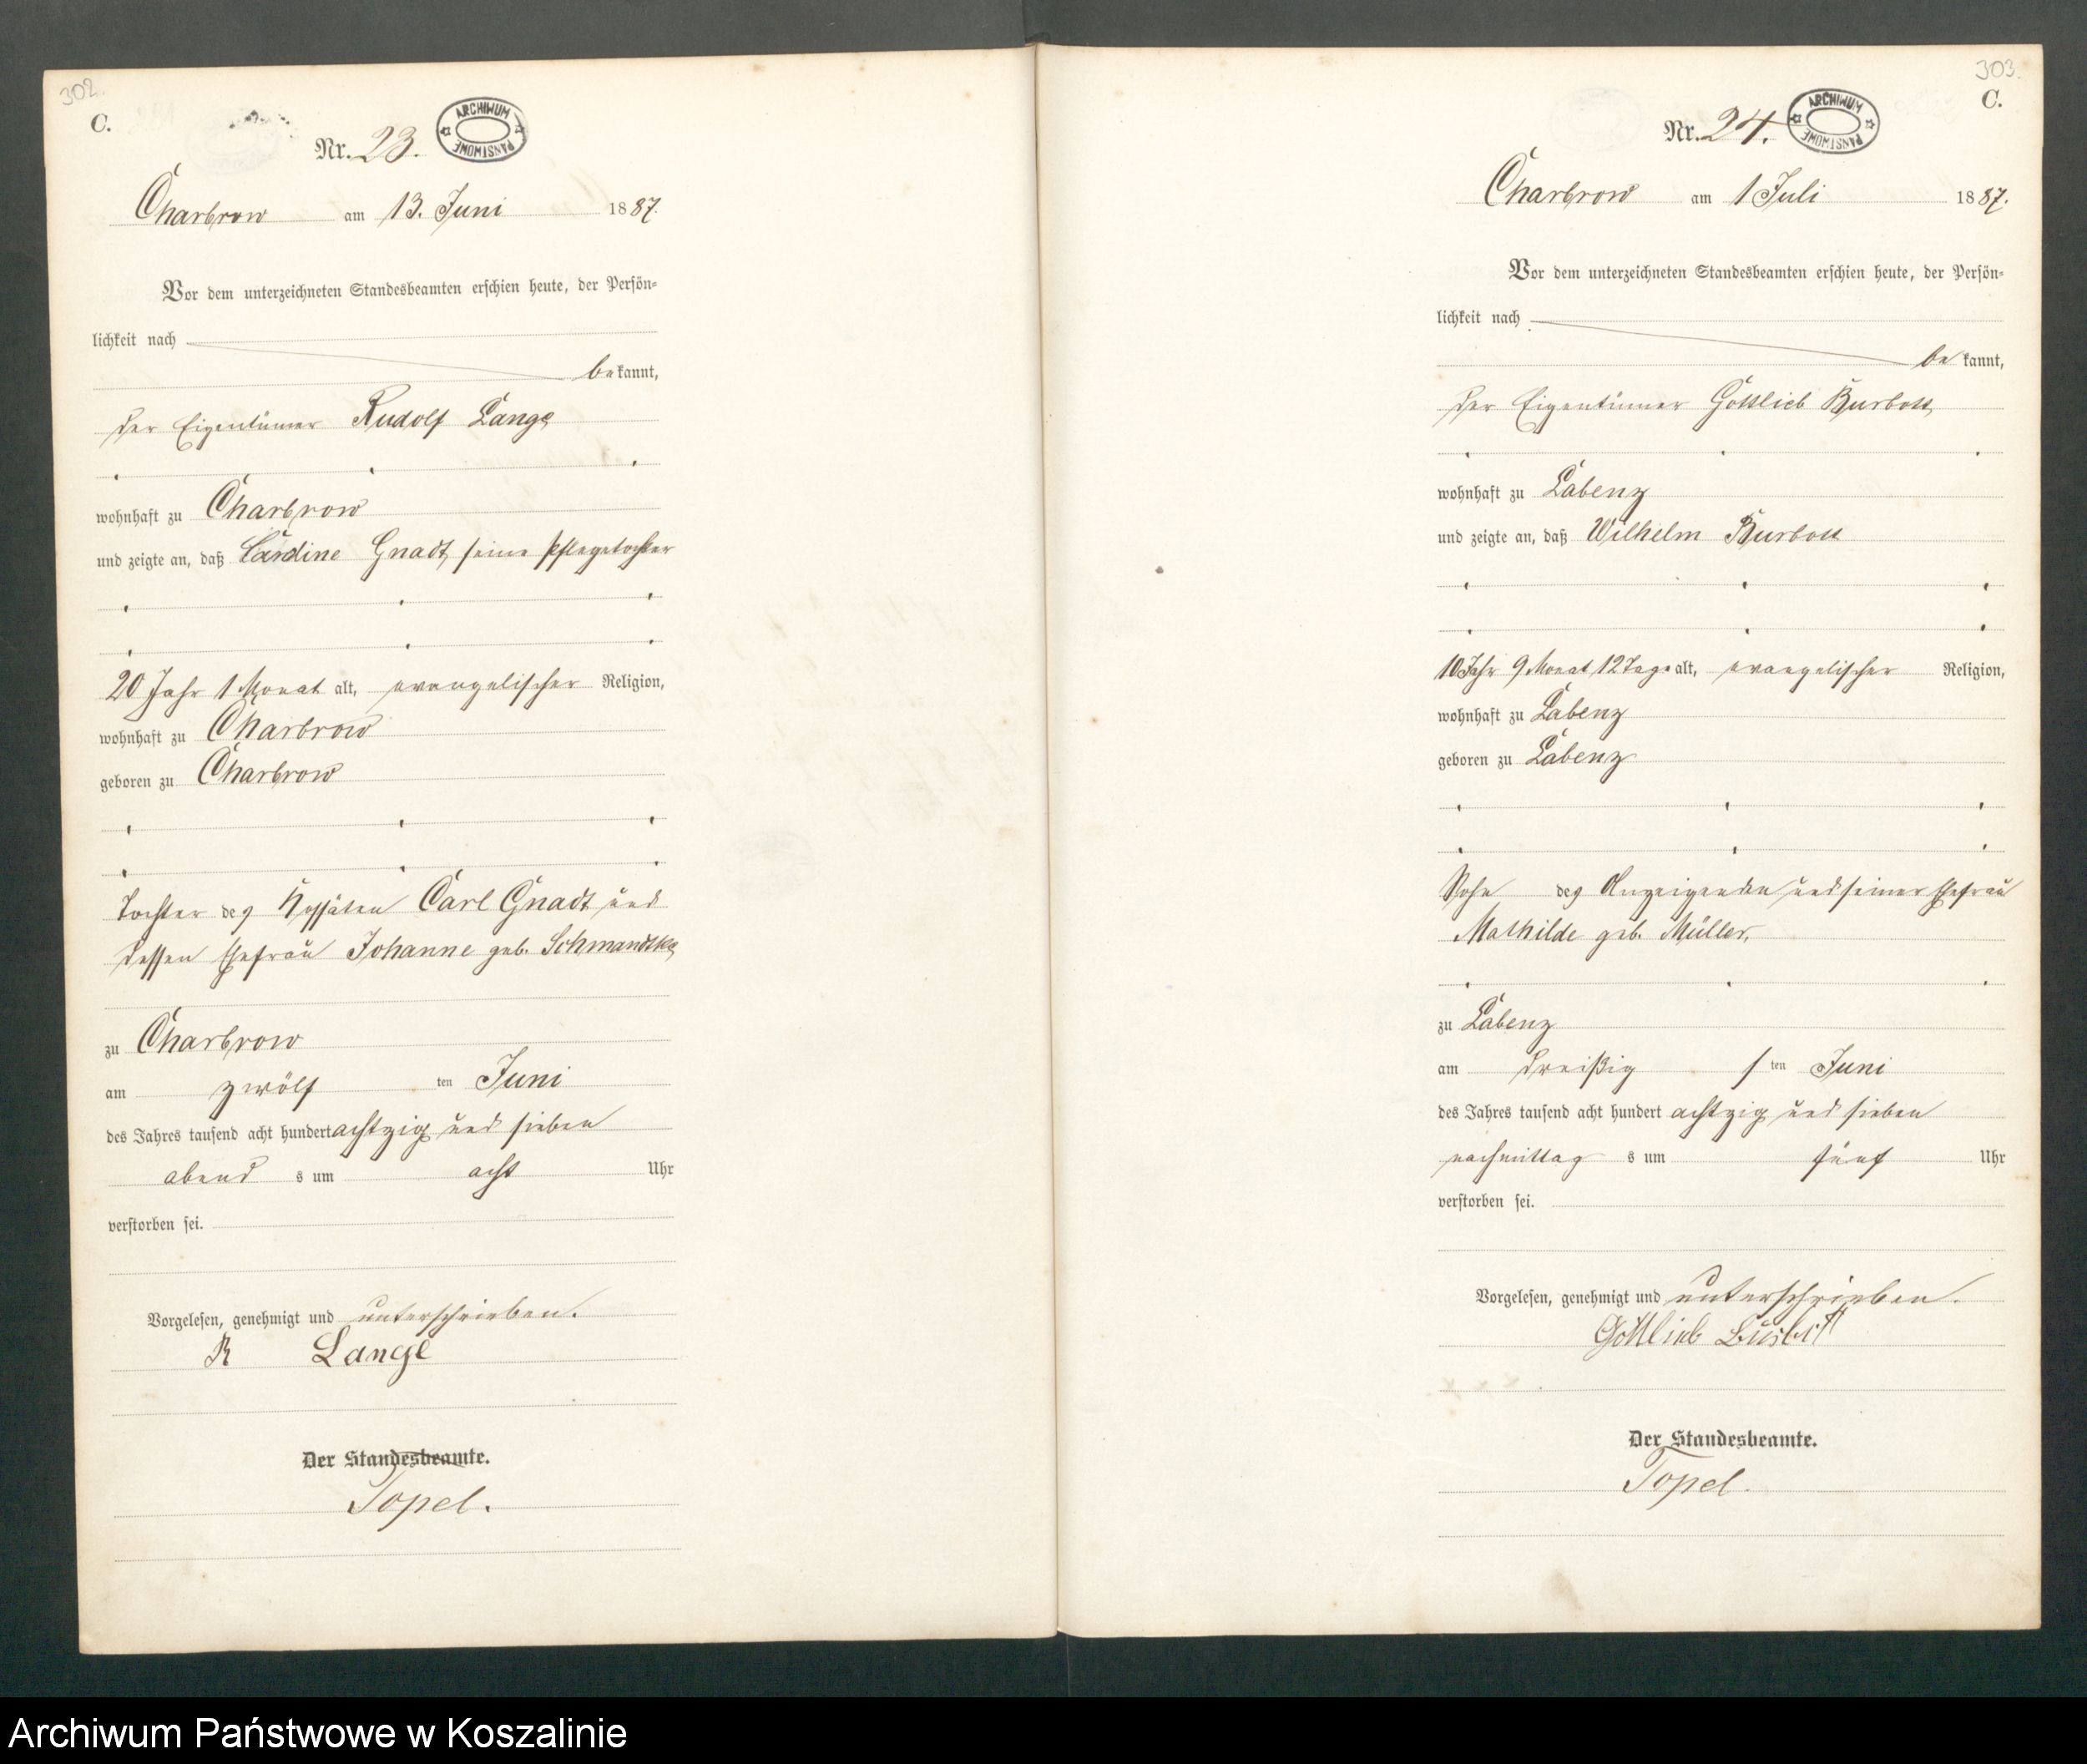 302.
C.
Nr. 23.
ARCHIWUM PAŃSTWOWE
Charbrow am 13. Juni 1887.
Vor dem unterzeichneten Standesbeamten erschien heute, der Persön-
lichkeit nach
bekannt,
der Eigentümer Rudolf Lange
wohnhaft zu Charbrow
und zeigte an, daß Caroline Gnadt, seine Pflegetochter
20 Jahr 1 Monat alt, evangelischer Religion,
wohnhaft zu Charbrow
geboren zu Charbrow
Tochter des Kossäten Carl Gnadt und
dessen Ehefrau Johanne geb. Schmandtke
zu Charbrow
am zwölf ten Juni
des Jahres tausend acht hundert achtzig und sieben
abend s um acht Uhr
verstorben sei.
Vorgelesen, genehmigt und unterschrieben.
R Lange
Der Standesbeamte.
Topel.
303.
C.
Nr. 24.
ARCHIWUM PAŃSTWOWE
Charbrow am 1 Juli 1887.
Vor dem unterzeichneten Standesbeamten erschien heute, der Persön-
lichkeit nach
bekannt,
der Eigentümer Gottlieb Burbott
wohnhaft zu Labenz
und zeigte an, daß Wilhelm Burbott
10 Jahr 9 Monat 12 Tage alt, evangelischer Religion,
wohnhaft zu Labenz
geboren zu Labenz
Sohn des Anzeigenden und seiner Ehefrau
Mathilde geb. Müller,
zu Labenz
am dreißig sten Juni
des Jahres tausend acht hundert achtzig und sieben
nachmittag s um fünf Uhr
verstorben sei.
Vorgelesen, genehmigt und unterschrieben.
Gottlieb Burbott
Der Standesbeamte.
Topel.
Archiwum Państwowe w Koszalinie